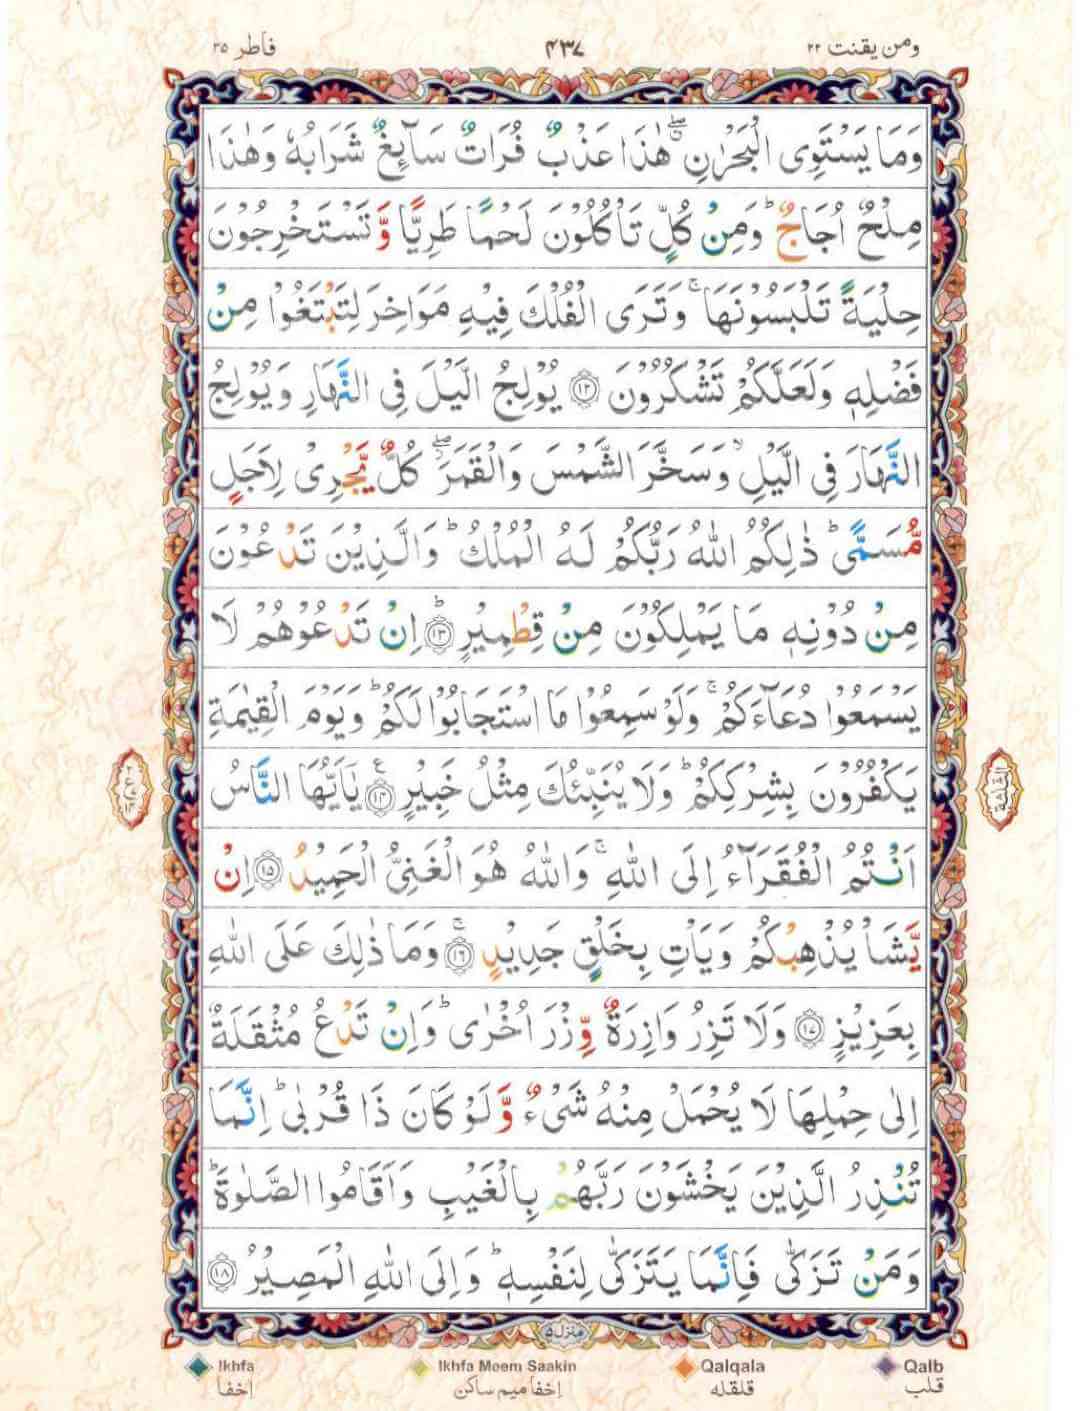 ومن يقنت ٢٢ ۴۳۷ فاطر ٣٥
وَمَا يَسْتَوِى الْبَحْرٰنِ ۖۗ هٰذَا عَذْبٌ فُرَاتٌ سَآئِغٌ شَرَابُهٗ وَهٰذَا
مِلْحٌ اُجَاجٌ ؕ وَمِنْ كُلٍّ تَاْكُلُوْنَ لَحْمًا طَرِيًّا وَّتَسْتَخْرِجُوْنَ
حِلْيَةً تَلْبَسُوْنَهَا ۚ وَتَرَى الْفُلْكَ فِيْهِ مَوَاخِرَ لِتَبْتَغُوْا مِنْ
فَضْلِهٖ وَلَعَلَّكُمْ تَشْكُرُوْنَ ﴿١٢﴾ يُوْلِجُ الَّيْلَ فِى النَّهَارِ وَيُوْلِجُ
النَّهَارَ فِى الَّيْلِ ۙ وَسَخَّرَ الشَّمْسَ وَالْقَمَرَ ۖ كُلٌّ يَّجْرِىْ لِاَجَلٍ
مُّسَمًّى ؕ ذٰلِكُمُ اللّٰهُ رَبُّكُمْ لَهُ الْمُلْكُ ؕ وَالَّذِيْنَ تَدْعُوْنَ
مِنْ دُوْنِهٖ مَا يَمْلِكُوْنَ مِنْ قِطْمِيْرٍ ؕ ﴿١٣﴾ اِنْ تَدْعُوْهُمْ لَا
يَسْمَعُوْا دُعَآءَكُمْ ۚ وَلَوْ سَمِعُوْا مَا اسْتَجَابُوْا لَكُمْ ؕ وَيَوْمَ الْقِيٰمَةِ
يَكْفُرُوْنَ بِشِرْكِكُمْ ؕ وَلَا يُنَبِّئُكَ مِثْلُ خَبِيْرٍ ﴿١٤﴾ ع يٰۤاَيُّهَا النَّاسُ
اَنْتُمُ الْفُقَرَآءُ اِلَى اللّٰهِ ۚ وَاللّٰهُ هُوَ الْغَنِىُّ الْحَمِيْدُ ﴿١٥﴾ اِنْ
يَّشَاْ يُذْهِبْكُمْ وَيَاْتِ بِخَلْقٍ جَدِيْدٍ ۚ ﴿١٦﴾ وَمَا ذٰلِكَ عَلَى اللّٰهِ
بِعَزِيْزٍ ﴿١٧﴾ وَلَا تَزِرُ وَازِرَةٌ وِّزْرَ اُخْرٰى ؕ وَاِنْ تَدْعُ مُثْقَلَةٌ
اِلٰى حِمْلِهَا لَا يُحْمَلْ مِنْهُ شَىْءٌ وَّلَوْ كَانَ ذَا قُرْبٰى ؕ اِنَّمَا
تُنْذِرُ الَّذِيْنَ يَخْشَوْنَ رَبَّهُمْ بِالْغَيْبِ وَاَقَامُوا الصَّلٰوةَ ؕ
وَمَنْ تَزَكّٰى فَاِنَّمَا يَتَزَكّٰى لِنَفْسِهٖ ؕ وَاِلَى اللّٰهِ الْمَصِيْرُ ﴿١٨﴾
الثلثة
منزل ۵
Ikhfa Ikhfa Meem Saakin Qalqala Qalb
إخفا إخفا ميم ساكن قلقله قلب